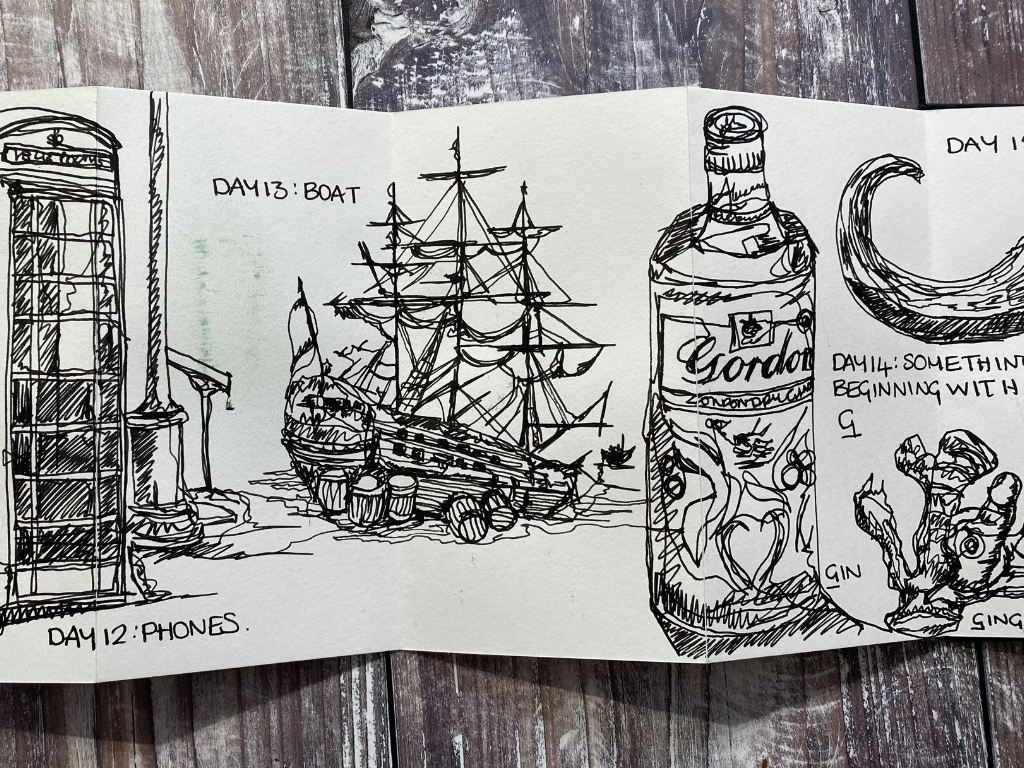 DAY 12: PHONES.
DAY 13: BOAT
Gordon
LONDON DRY GIN
DAY 14: SOMETHIN
BEGINNING WITH
G
GIN
GING
DAY 1